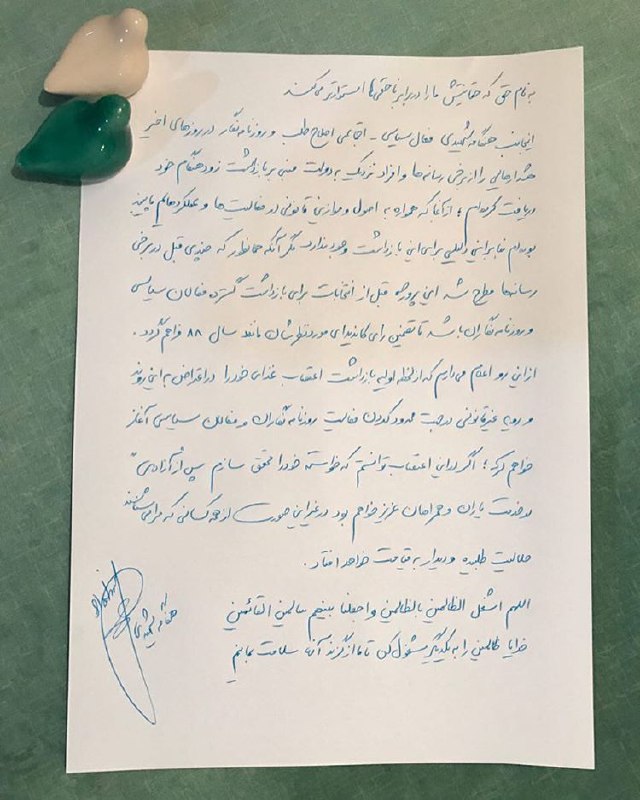 به نام حق که حقانیتش ما را در برابر ناحقی‌ها استوارتر می‌کند
اینجانب هنگامه شهیدی فعال سیاسی - اجتماعی اصلاح طلب و روزنامه‌نگار در روزهای اخیر
هشدارهایی را از برخی رسانه‌ها و افراد نزدیک به دولت مبنی بر بازداشت زود هنگام خود
دریافت کرده‌ام ؛ از آنجا که همواره به اصول و موازین قانونی در فعالیت‌ها و عملکردهایم پایبند
بوده‌ام بنابراین دلیلی برای این بازداشت وجود ندارد مگر آنکه همانطور که چندی قبل در برخی
رسانه‌ها مطرح شد این پروژه قبل از انتخابات برای بازداشت گسترده فعالان سیاسی
و روزنامه‌نگاران باشد تا تضمین رای کاندیدای مورد نظرشان مانند سال ۸۸ فراهم گردد .
از این رو اعلام می‌دارم که از لحظه اولیه بازداشت اعتصاب غذای خود را در اعتراض به این روند
و رویه غیرقانونی در جهت محدود کردن فعالیت روزنامه‌نگاران و فعالان سیاسی آغاز
خواهم کرد ؛ اگر در این اعتصاب توانستم که خواسته خود را محقق سازم پس از "آزادی"
در خدمت یاران و همراهان عزیز خواهم بود در غیر این صورت از همه کسانی که مرا می‌شناسند
حلالیت طلبیده و دیدار به قیامت خواهد افتاد .
اللهم اشغل الظالمین بالظالمین واجعلنا بینهم سالمین الغانمین
خدایا ظالمین را به یکدیگر مشغول کن تا ما از گزند آنها سلامت بمانیم
هنگامه شهیدی